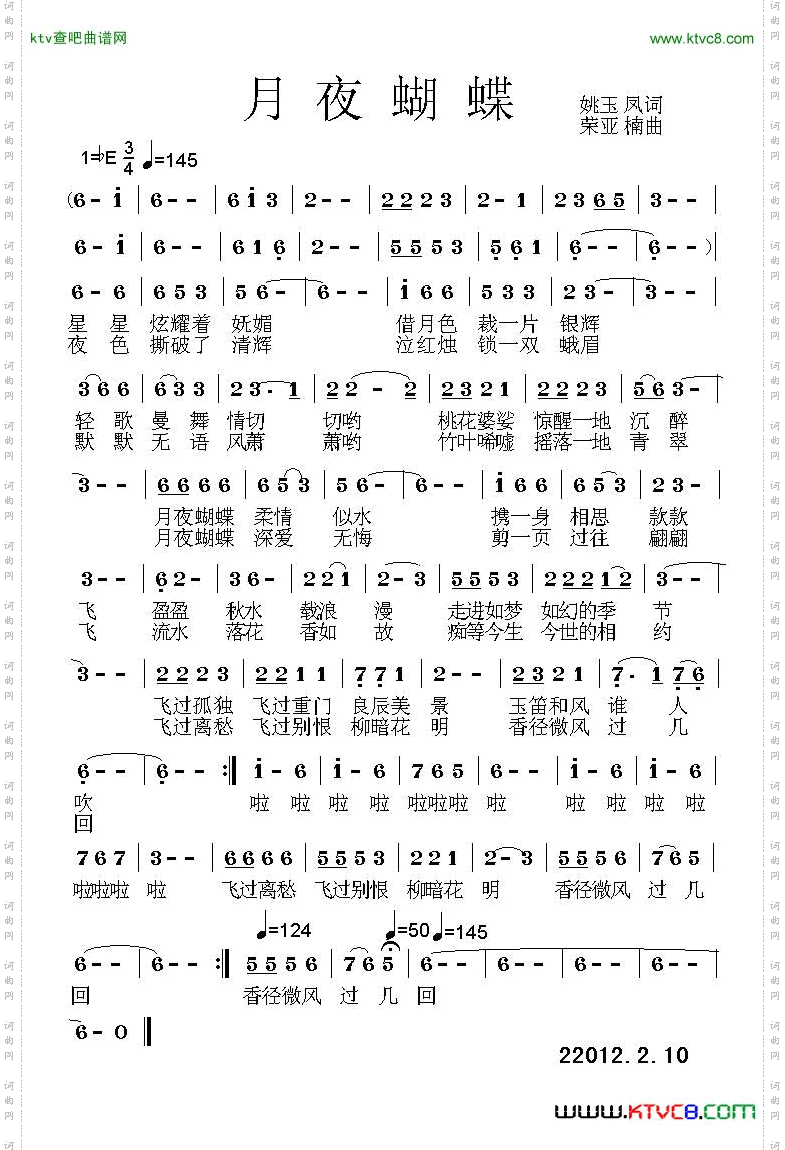 ktv查吧曲谱网 www.ktvc8.com
月夜蝴蝶
姚玉凤词
荣亚楠曲
1=♭E 3/4 ♩=145
(6-i | 6-- | 6i3 | 2-- | 2223 | 2-1 | 2365 | 3-- |
6-i | 6-- | 616 | 2-- | 5553 | 561 | 6-- | 6-- )
6-6 | 653 | 56- | 6-- | i66 | 533 | 23- | 3-- |
星 星 炫耀着 妩媚 借月色 裁一片 银辉
夜 色 撕破了 清辉 泣红烛 锁一双 蛾眉
366 | 633 | 23·1 | 22-2 | 2321 | 2223 | 563- |
轻 歌 曼 舞 情切 切哟 桃花婆娑 惊醒一地 沉 醉
默 默 无 语 风萧 萧哟 竹叶唏嘘 摇落一地 青 翠
3-- | 6666 | 653 | 56- | 6-- | i66 | 653 | 23- |
月夜蝴蝶 柔情 似水 携一身 相思 款款
月夜蝴蝶 深爱 无悔 剪一页 过往 翩翩
3-- | 62- | 36- | 221 | 2-- | 5553 | 22212 | 3-- |
飞 盈盈 秋水 载浪 漫 走进如梦 如幻的季 节
飞 流水 落花 香如 故 痴等今生 今世的相 约
3-- | 2223 | 2221 | 771 | 2-- | 2321 | 7·1 | 76 |
飞过孤独 飞过重门 良辰美 景 玉笛和风 谁 人
飞过离愁 飞过别恨 柳暗花 明 香径微风 过 几
6-- | 6-- :| i-6 | i-6 | 765 | 6-- | i-6 | i-6 |
吹 啦 啦 啦 啦 啦啦啦 啦 啦 啦 啦 啦
回
767 | 3-- | 6666 | 5553 | 221 | 2-3 | 5556 | 765 |
啦啦啦 啦 飞过离愁 飞过别恨 柳暗花 明 香径微风 过 几
♩=124 ♩=50 ♩=145
6-- | 6-- :| 5556 | 765 | 6-- | 6-- | 6-- | 6-- |
回 香径微风 过 几 回
6-0 ‖
22012.2.10
www.KTVC8.com
词曲网